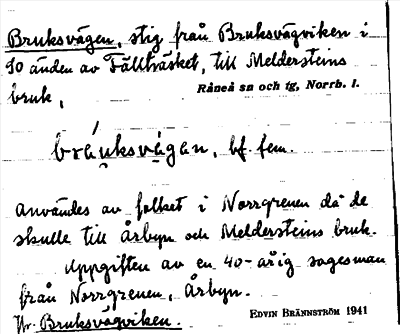 Bruksvägen, stig från Bruksvägviken i
SO änden av Fällträsket, till Meldersteins
bruk,
Råneå sn och tg, Norrb. l.
bráuksvẹgạn, bf. fem.
Användes av folket i Norrgrenen då de
skulle till Årbyn och Meldersteins bruk.
Uppgiften av en 40-årig sagesman
från Norrgrenen, Årbyn.
Jfr. Bruksvägviken.
EDVIN BRÄNNSTRÖM 1941